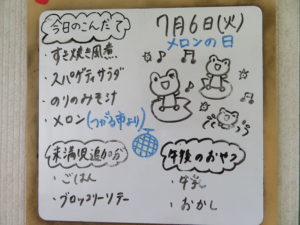 今日のこんだて
7月6日(火)
メロンの日
・すき焼き風煮
・スパゲティサラダ
・のりのみそ汁
・メロン(つがる市より)
未満児追加分
・ごはん
・ブロッコリーソテー
午後のおやつ
・牛乳
・おかし